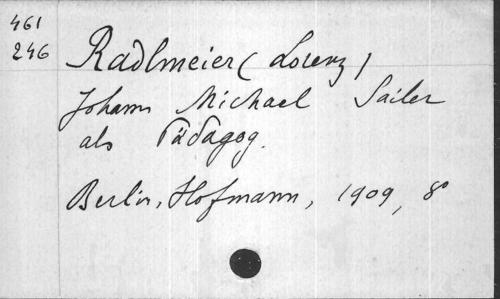 461
246
Radlmeier (Lorenz)
Johann Michael Sailer
als Pädagog.
Berlin, Hofmann, 1909, 8°